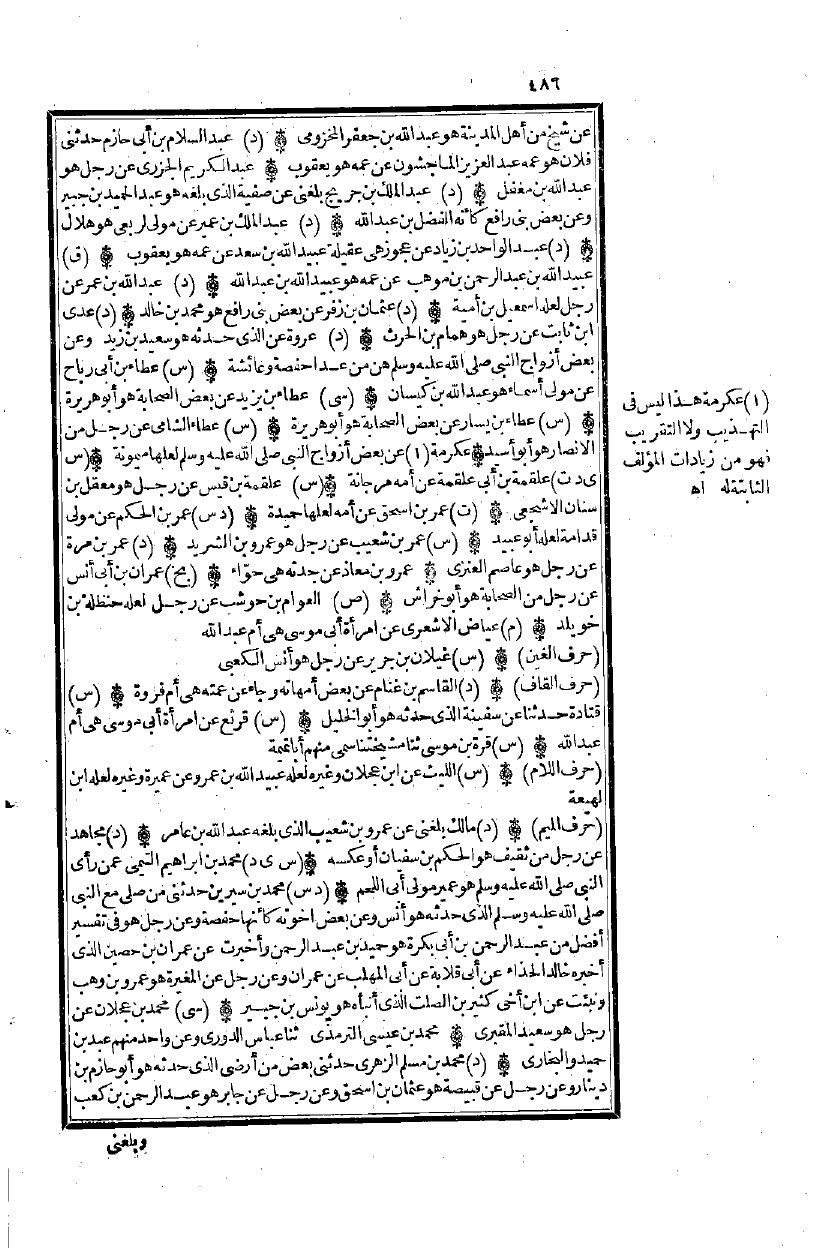 ٤٨٦
عن شيخ من أهل المدينة هو عبد الله بن جعفر المخزومى ۞ (د) عبد السلام بن أبى حازم حدثنى
فلان هو عمه عبد العزيز بن الماجشون عن عمه هو يعقوب ۞ عبد الكريم الجزرى عن رجل هو
عبد الله بن مغفل ۞ (د) عبد الملك بن جريج بلغنى عن صفية الذى بلغه هو عبد الحميد بن جبير
وعن بعض بنى رافع كأنه الفضل بن عبد الله ۞ (د) عبد الملك بن عمير عن مولى لربعى هو هلال
۞ (د) عبد الواحد بن زياد عن عجوز هى عقيلة عبيد الله بن سعد عن عمه هو يعقوب ۞ (ق)
عبيد الله بن عبد الرحمن بن موهب عن عمه هو عبيد الله بن عبد الله ۞ (د) عبد الله بن عمر عن
رجل لعله اسمعيل بن أمية ۞ (د) عثمان بن زفر عن بعض بنى رافع هو محمد بن خالد ۞ (د) عدى
ابن ثابت عن رجل هو همام بن الحرث ۞ (د) عروة عن الذى حدثه هو سعيد بن زيد وعن
بعض أزواج النبى صلى الله عليه وسلم هن من عدا حفصة وعائشة ۞ (س) عطاء بن أبى رباح
عن مولى أسماء هو عبد الله بن كيسان ۞ (سى) عطاء بن يزيد عن بعض الصحابة هو أبو هريرة
۞ (س) عطاء بن يسار عن بعض الصحابة هو أبو هريرة ۞ (س) عطاء الشامى عن رجل من
الانصار هو أبو أسيد ۞ عكرمة (١) عن بعض أزواج النبى صلى الله عليه وسلم لعلها ميمونة ۞ (س
ى د ت) علقمة بن أبى علقمة عن أمه مرجانة ۞ (س) علقمة بن قيس عن رجل هو معقل بن
سنان الاشجعى ۞ (ت) عمر بن اسحق عن أمه لعلها حميدة ۞ (د س) عمر بن الحكم عن مولى
قدامة لعله أبو عبيد ۞ (س) عمر بن شعيب عن رجل هو عمرو بن الشريد ۞ (د) عمر بن مرة
عن رجل هو عاصم العنزى ۞ عمرو بن معاذ عن جدته هى حوّاء ۞ (بخ) عمران بن أبى أنس
عن رجل من الصحابة هو أبو خراش ۞ (ص) العوام بن حوشب عن رجل لعله حنظلة بن
خويلد ۞ (م) عياض الاشعرى عن امرأة أبى موسى هى أم عبد الله
(حرف الغين) ۞ (س) غيلان بن جرير عن رجل هو أنس الكعبى
(حرف القاف) ۞ (د) القاسم بن غنام عن بعض أمهاته وجاء عن عمته هى أم فروة ۞ (س)
قتادة حدثنا عن سفينة الذى حدثه هو أبو الخليل ۞ (س) قرثع عن امرأة أبى موسى هى أم
عبد الله ۞ (س) قرة بن موسى ثنا مشيختنا سمى منهم أبا تميمة
(حرف اللام) ۞ (س) الليث عن ابن عجلان وغيره لعله عبيد الله بن عمر وعن عميرة وغيره لعله ابن
لهيعة
(حرف الميم) ۞ (د) مالك بلغنى عن عمرو بن شعيب الذى بلغه عبد الله بن عامر ۞ (د) مجاهد
عن رجل من ثقيف هو الحكم بن سفيان أو عكسه ۞ (س ى د) محمد بن ابراهيم التيمى عمن رأى
النبى صلى الله عليه وسلم هو عمير مولى أبى اللحم ۞ (د س) محمد بن سيرين حدثنى من صلى مع النبى
صلى الله عليه وسلم الذى حدثه هو أنس وعن بعض اخوته كأنها حفصة وعن رجل هو فى تفسير
أفضل من عبد الرحمن بن أبى بكرة هو حميد بن عبد الرحمن وأخبرت عن عمران بن حصين الذى
أخبره خالد الحذاء عن أبى قلابة عن أبى المهلب عن عمران وعن رجل عن المغيرة هو عمرو بن وهب
ونبئت عن ابن أخى كثير بن الصلت الذى أنبأه هو يونس بن جبير ۞ (سى) محمد بن عجلان عن
رجل هو سعيد المقبرى ۞ محمد بن عيسى الترمذى ثنا عباس الدورى وعن واحد منهم عبد بن
حميد والبخارى ۞ (د) محمد بن مسلم الزهرى حدثنى بعض من أرضى الذى حدثه هو أبو حازم بن
دينار وعن رجل عن قبيصة هو عثمان بن اسحق وعن رجل عن جابر هو عبد الرحمن بن كعب
وبلغنى
(١) عكرمة هذا ليس فى
التهذيب ولا التقريب
فهو من زيادات المؤلف
الثابتة له اه